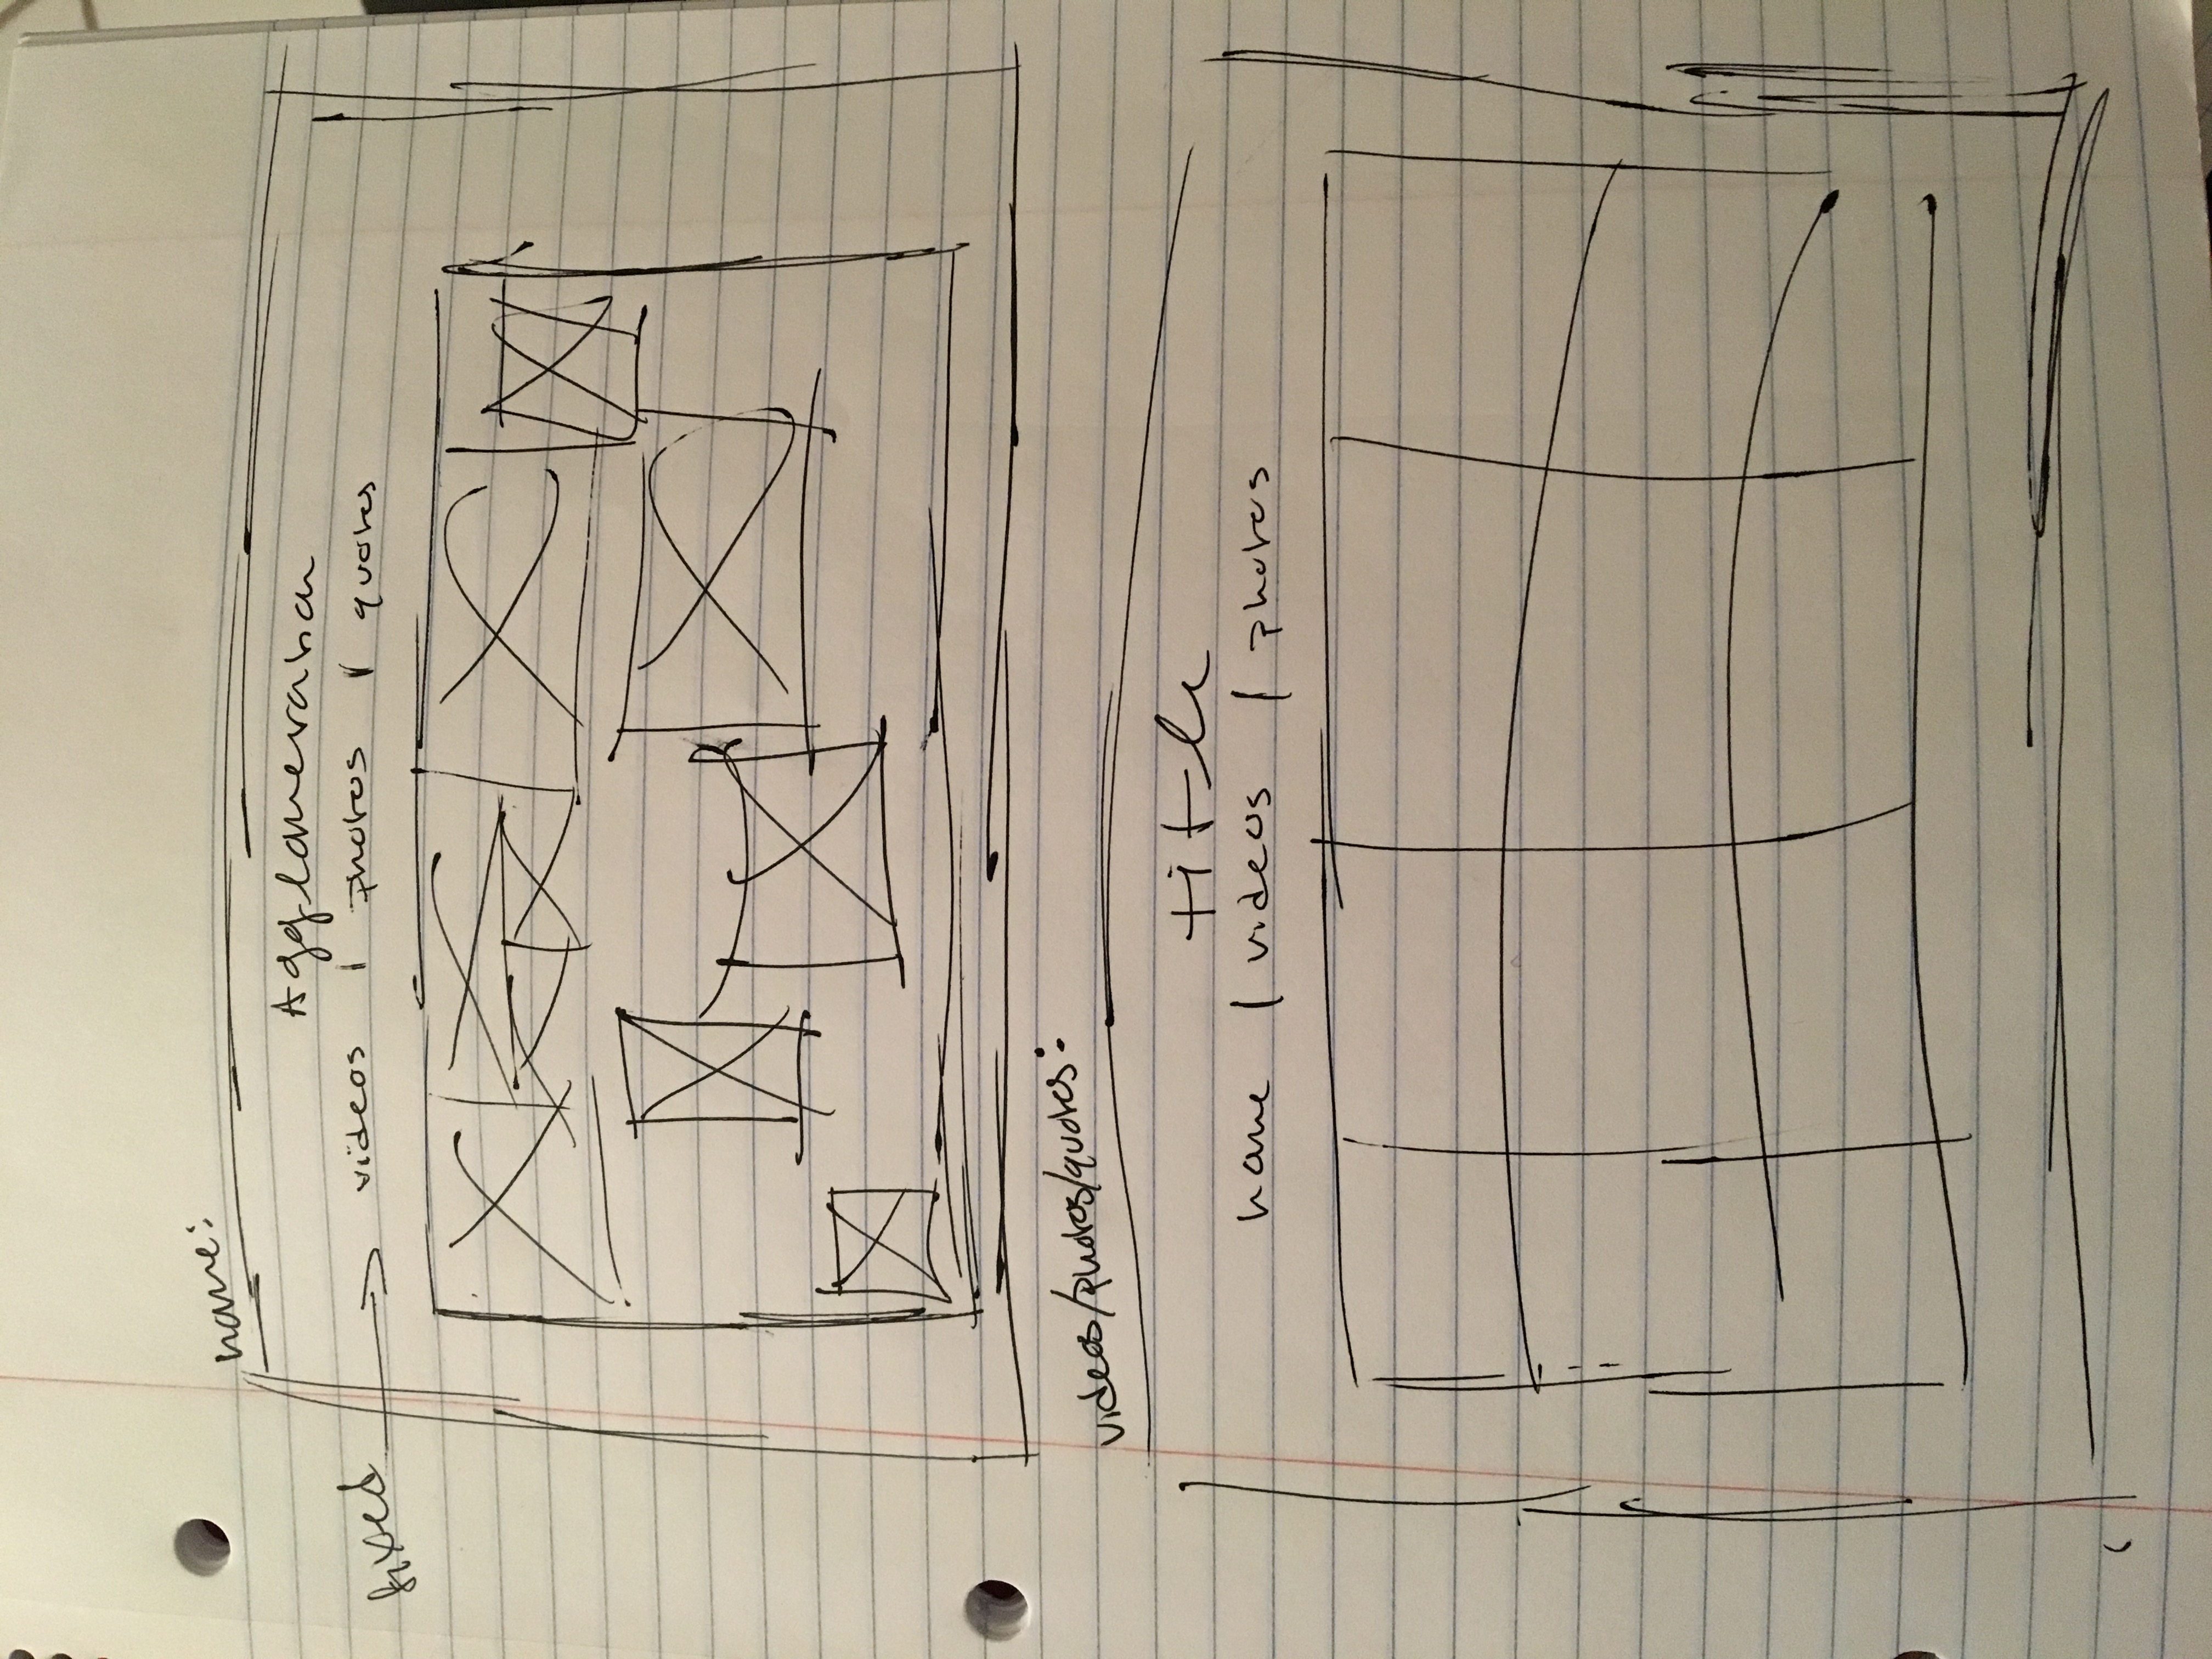 home:
Agglomeration
fixed → videos | photos | quotes
videos/photos/quotes:
title
home | videos | photos